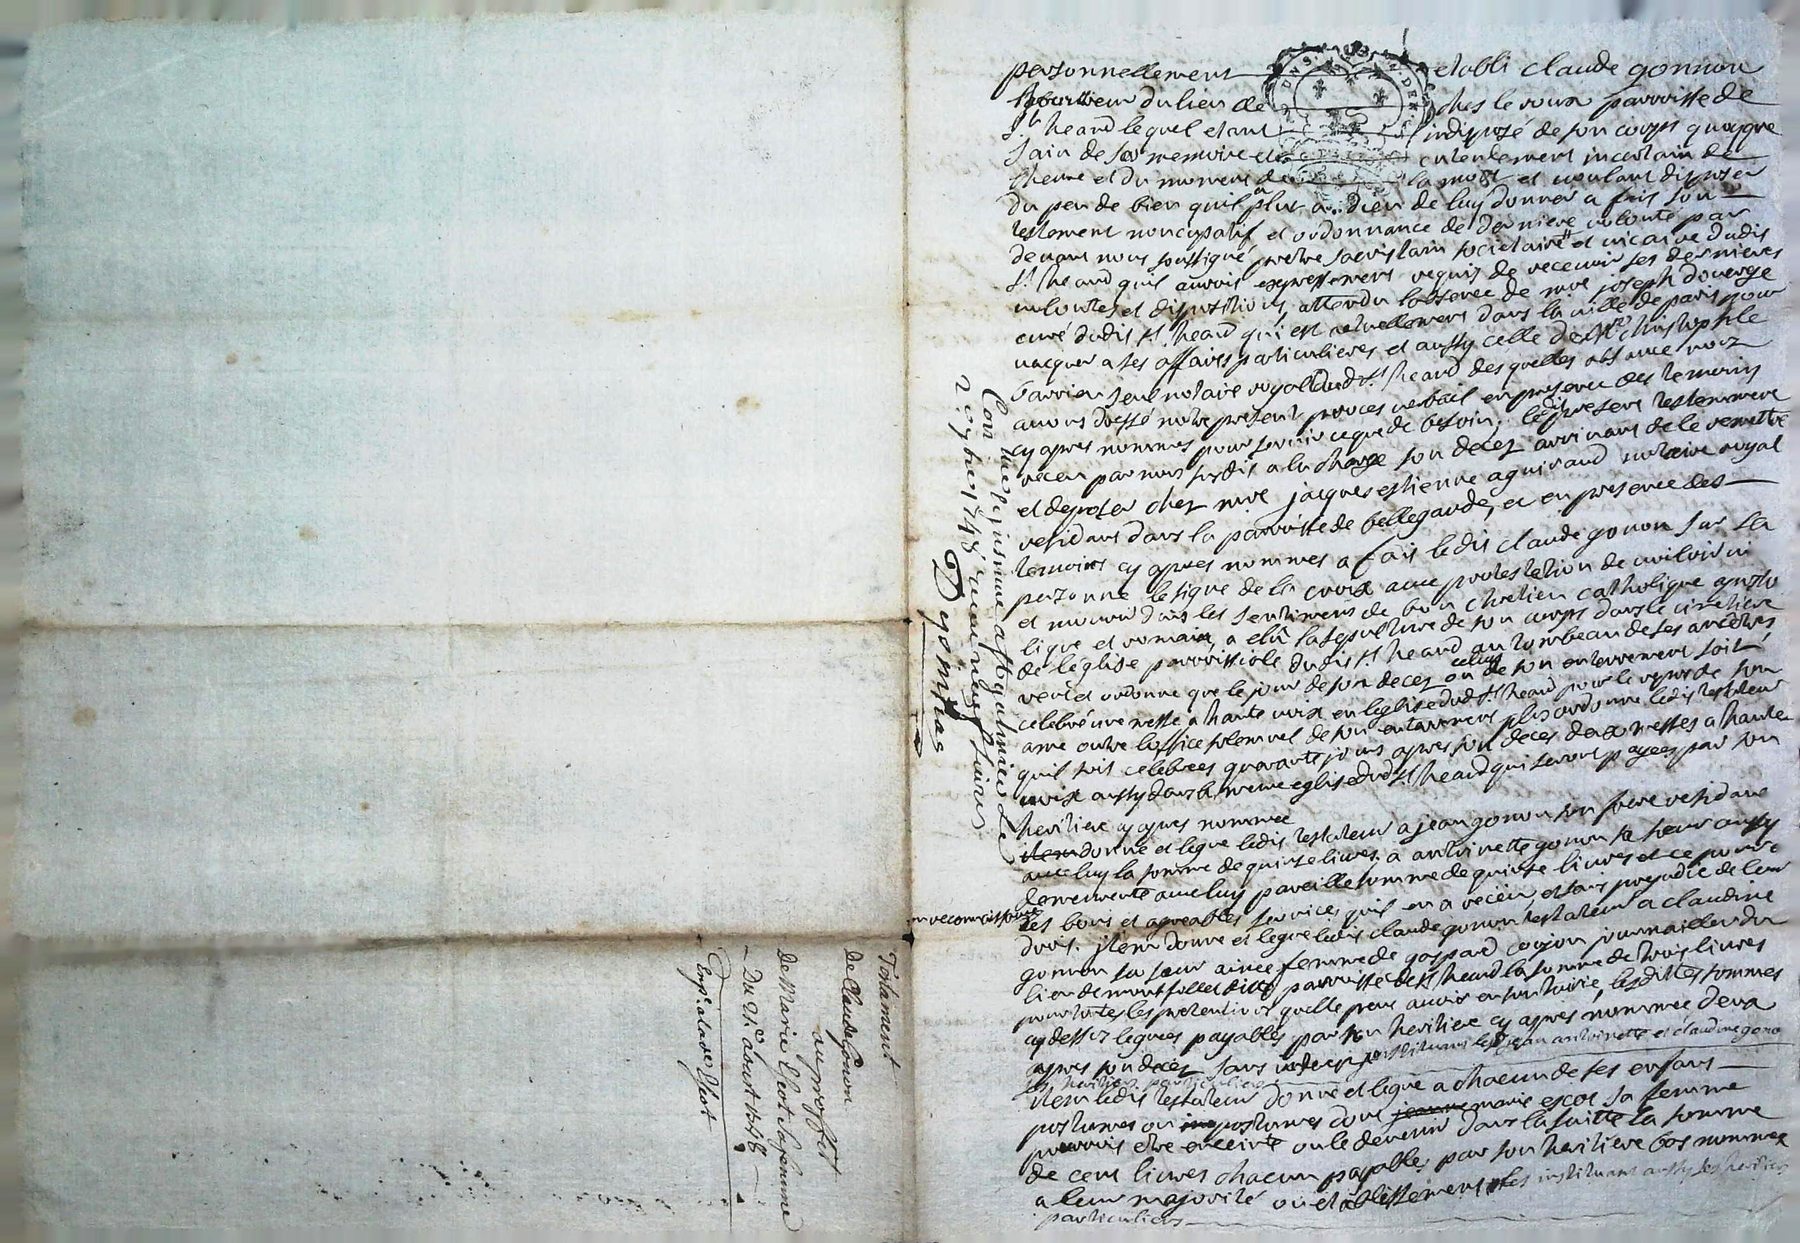 personnellement etabli claude gonnon
laboureur du lieu de ches le roux parroisse de
st heand lequel etant indisposé de son corps quoyque
sain de sa memoire et entendement incertain de
lheure et du moment de la mort et voulant disposer
du peu de bien quil a plu a dieu de luy donner a fait son
testement noncupatif et ordonnance de derniere volonté par
devant nous soussigné pretre sacristain societaire et vicaire dudit
st heand quil auroit expressement requis de recevoir ses dernieres
volontes et dispositions, attendu labsence de mre joseph
curé dudit st heand qui est actuellement dans la ville de paris pour
vacquer a ses affaires particulieres et aussy celle de Mre christophle
seul notaire royal dud. st heand des quelles absence nous
avons dressé notre present proces verbail en presence des temoins
cy apres nommes pour servir ce que de besoin, ledit present testement
receu par nous susdit a la charge son decez arrivant de le remettre
et deposer chez mre jacques estienne aguiraud notaire royal
residant dans la parroisse de bellegarde, et en presence des
temoins cy apres nommes a fait ledit claude gonon sur sa
personne le signe de la croix avec protestation de
et mourir dans les sentimens de bon chretien catholique aposto
lique et romain, a elû la sepulture de son corps dans le cimetiere
de leglise parroissiale dudit st heand au tombeau de ses ancetres
veut et ordonne que le jour de son decez ou celuy de son enterrement soit
celebré une messe a haute voix en leglise dud st heand pour le repos de son
ame outre loffice solemnel de son enterrement plus ordonne ledit testateur
quil soit celebrées quarante jours apres son deces deux messes a haute
voix aussy dans la meme eglise dud st heand qui seront payees par son
heritiere cy apres nommée
item donne et legue ledit testateur a jean gonon son frere residant
avec luy la somme de quinse livres, a antoinette gonon sa soeur aussy
demeurante avec luy pareille somme de quinse livres et ce pour
en reconnoissance
les bons et agreables services quil en a receu, et sans prejudice de leur
droit. item donne et legue ledit claude gonon testateur a claudine
gonon sa soeur ainée femme de gaspard coujon journaillier du
lieu de montfolles dite parroisse de st heand la somme de trois livres
pour toutes les pretentions quelle peut avoir en son hoirie, lesdittes sommes
cy dessus leguées payables par son heritiere cy apres nommée deux
apres son decez sans interez, instituant lesd jean antoinette et claudine gono
ses heritiers particuliers
item ledit testateur donne et legue a chacun de ses enfans
postumes ou postumes dont jeanne marie escot sa femme
pourroit etre enceinte ou le devenir dans la suitte la somme
de cent livres chacun payables par son heritiere bas nommée
a leur majorité ou etablissement les instituant aussy ses heritiers
particuliers
2 7bre 1748
Deyomas
Testament
de Claude Gonon
au proffit
de Marie Escot sa femme
Du 21e aoust 1748